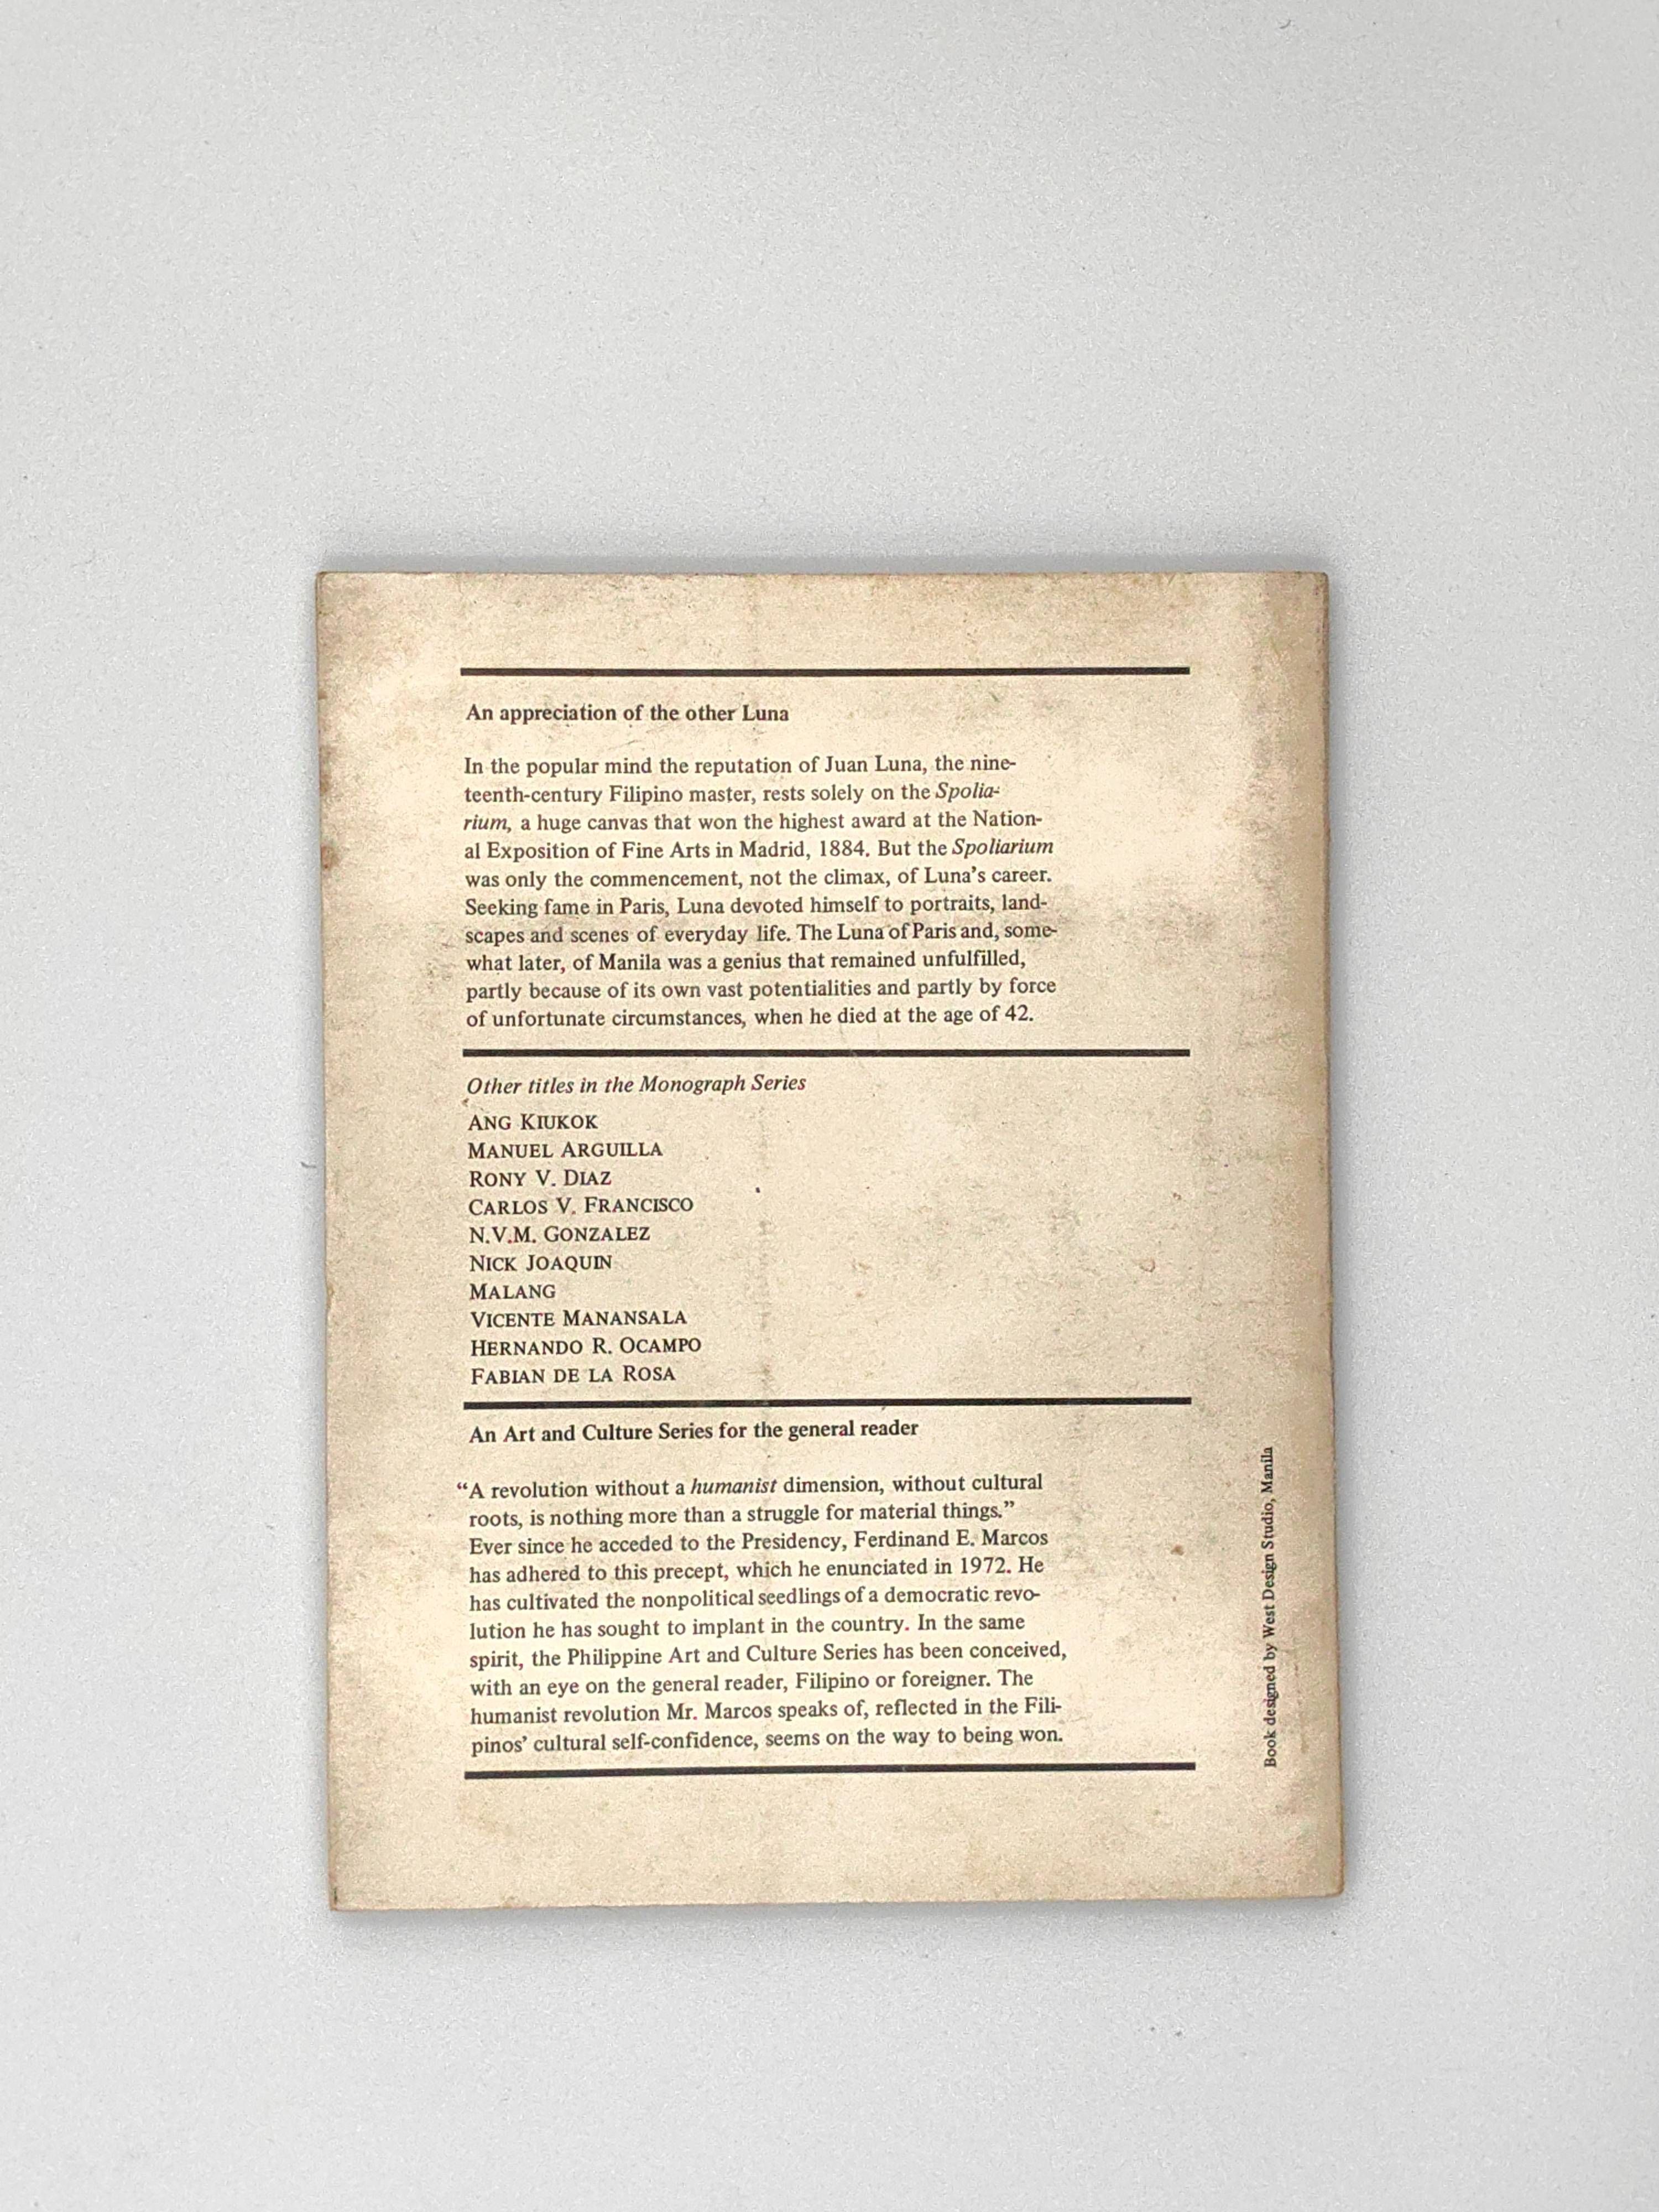 An appreciation of the other Luna
In the popular mind the reputation of Juan Luna, the nine-
teenth-century Filipino master, rests solely on the Spolia-
rium, a huge canvas that won the highest award at the Nation-
al Exposition of Fine Arts in Madrid, 1884. But the Spoliarium
was only the commencement, not the climax, of Luna's career.
Seeking fame in Paris, Luna devoted himself to portraits, land-
scapes and scenes of everyday life. The Luna of Paris and, some-
what later, of Manila was a genius that remained unfulfilled,
partly because of its own vast potentialities and partly by force
of unfortunate circumstances, when he died at the age of 42.
Other titles in the Monograph Series
ANG KIUKOK
MANUEL ARGUILLA
RONY V. DIAZ
CARLOS V. FRANCISCO
N.V.M. GONZALEZ
NICK JOAQUIN
MALANG
VICENTE MANANSALA
HERNANDO R. OCAMPO
FABIAN DE LA ROSA
An Art and Culture Series for the general reader
“A revolution without a humanist dimension, without cultural
roots, is nothing more than a struggle for material things.”
Ever since he acceded to the Presidency, Ferdinand E. Marcos
has adhered to this precept, which he enunciated in 1972. He
has cultivated the nonpolitical seedlings of a democratic revo-
lution he has sought to implant in the country. In the same
spirit, the Philippine Art and Culture Series has been conceived,
with an eye on the general reader, Filipino or foreigner. The
humanist revolution Mr. Marcos speaks of, reflected in the Fili-
pinos' cultural self-confidence, seems on the way to being won.
Book designed by West Design Studio, Manila